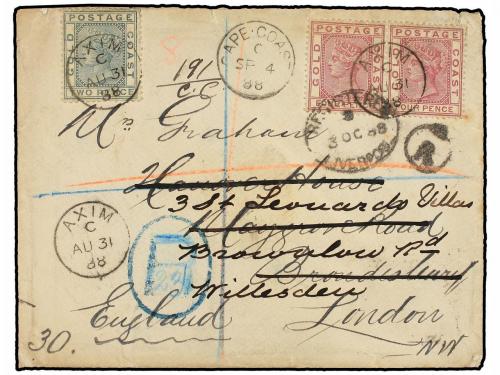 GOLD COAST
POSTAGE
TWO PENCE
AXIM
C
AU 31
88
8
191/
CAPE-COAST
C
SP 4
88
GOLD COAST
POSTAGE
FOUR PENCE
POSTAGE
COAST
FOUR PENCE
AXIM
C
AU 31
88
REGISTERED
3 OC 88
LIVERPOOL
R
Mrs Graham
Hanover House
3 St Leonards Villas
Road
Brownlow Rd
Brondesbury
Willesden
London
England
NW
AXIM
C
AU 31
88
30.